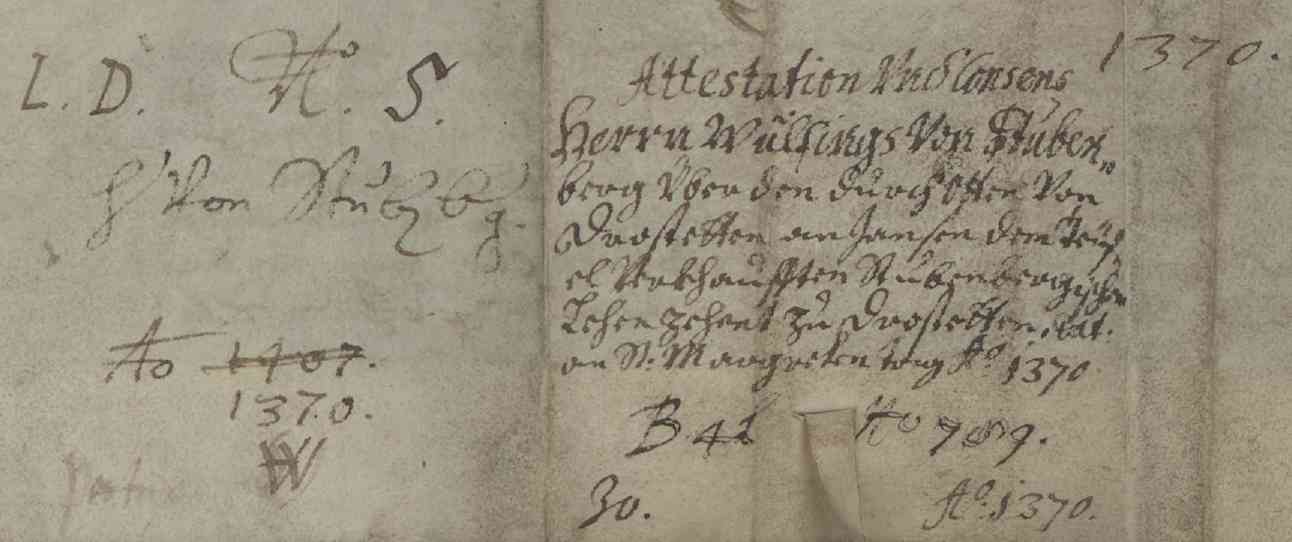 L. D. No. 5.
H. Von Stubbg.
Ao 1407.
1370.
W
1370.
Attestation Und Consens
Herrn Wülfings Von Stuben„
berg Über den durch Otten Von
Drostetten an Jansen dem Teuf„
el Verkhaufften Stubenbergischen
Lehen zehent zu Drostetten, dat.
an St. Margreten tag Ao 1370
B 41 No 789.
30. Ao. 1370.